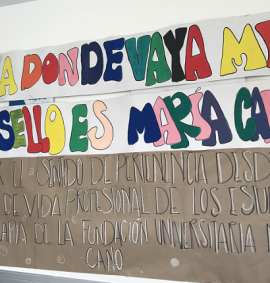 A DONDE VAYA M
SELLO ES MARÍA CA
EL SENIDO DE PERTENENCIA DESD
DE VIDA PROFESIONAL DE LOS ESTU
APIA DE LA FUNDACIÓN UNIVERSITARIA M
CANO